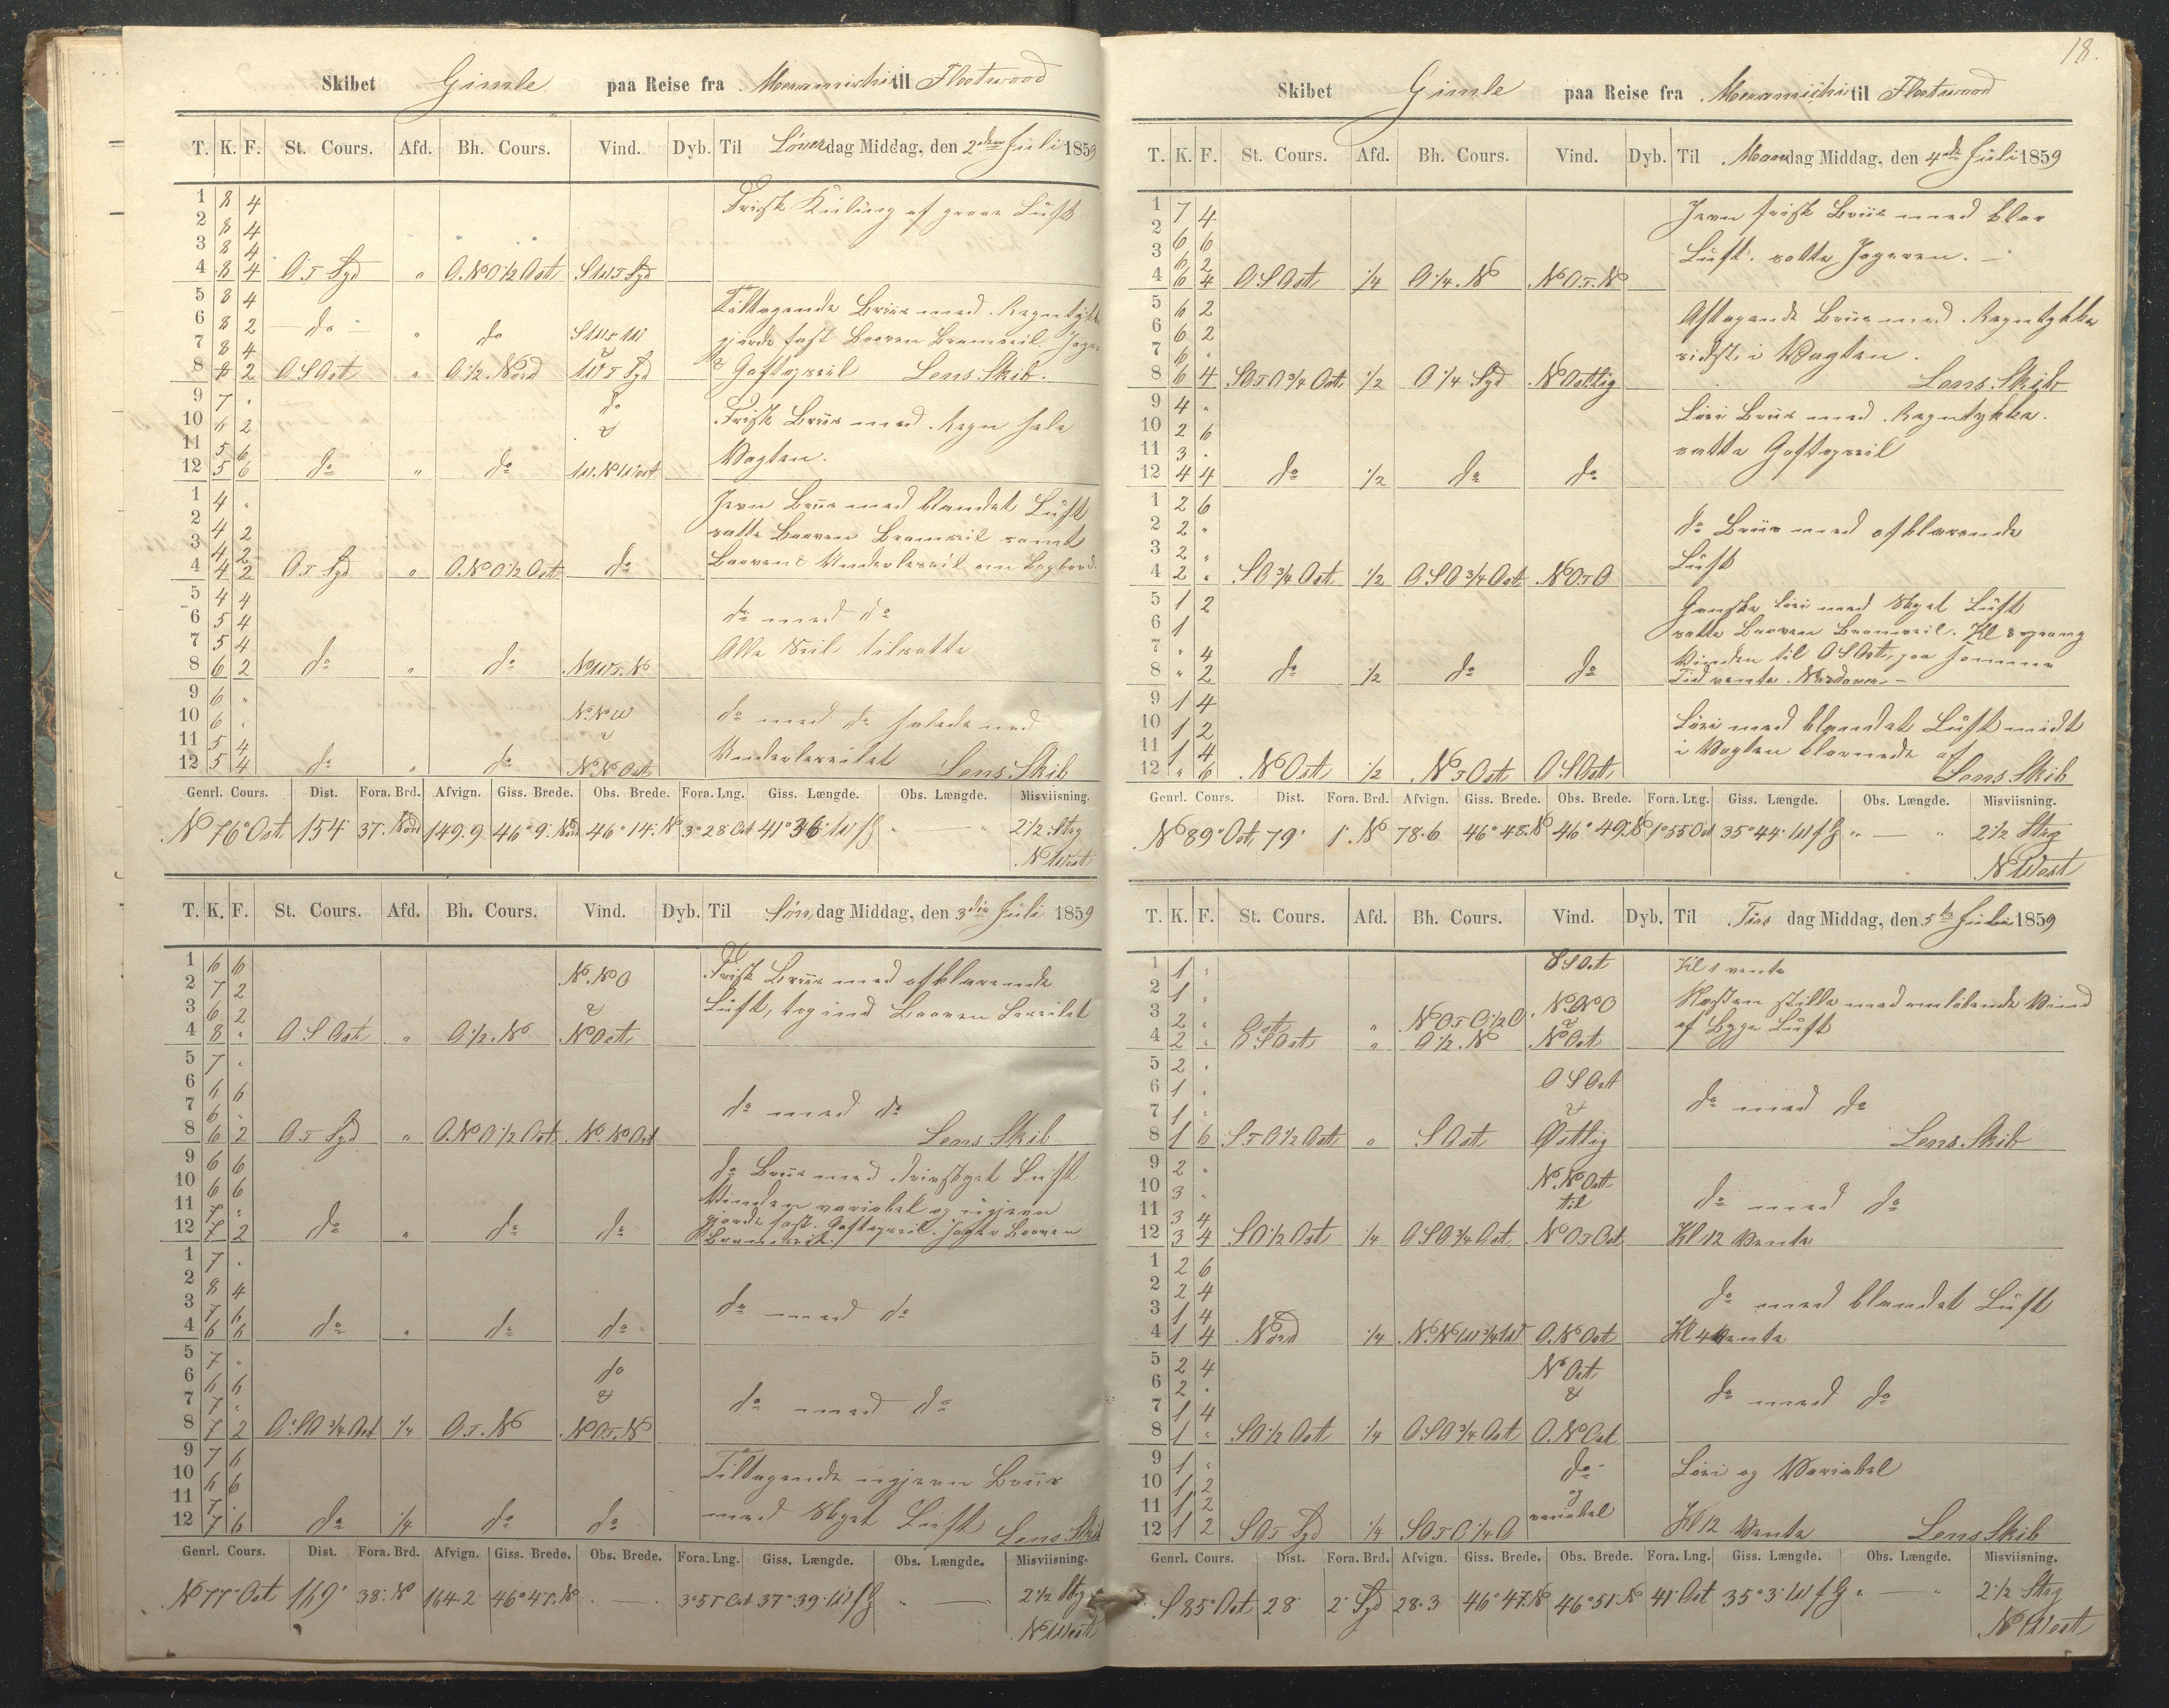 Skibet Gimle paa Reise fra Meramichi til Fleetwood
T. K. F. St. Cours. Afd. Bh. Cours. Vind. Dyb. Til Løverdag Middag, den 2den Juli 1859
1 8 4 Frisk Kuling af graae Luft
2 8 4
3 8 4
4 8 4 O.T. Syd " O.N.O ½ Ost S.W.T. Syd
5 8 4 Tiltagende Briis med Regntykke
6 8 2 do " do S.W.T.W
7 8 4 gjorde fast Booven Bramseil. Jager
8 8 2 O S Ost " O ½ Nord W.T. Syd & Gaftopseil Lens Skib.
9 7 " do
10 6 2 & Frisk Briis med Regn hele
11 5 6 Vagten.
12 5 6 do " do W.N.West
1 4 " Jevn Briis med blandet Luft
2 4 2 satte Booven Bramseil samt
3 4 2
4 4 2 O.T. Syd " O.N.O ½ Ost do Booven & Underleseil om Bagbord.
5 4 4 do med do
6 5 4
7 5 4 Alle Seil tilsatte
8 6 2 do " do N.W.T.N
9 6 " N.N.W do med do halede ned
10 6 " &
11 5 4 Underleseilet Lens Skib
12 5 4 do " do N.N.Ost
Genrl. Cours. Dist. Fora. Brd. Afvign. Giss. Brede. Obs. Brede. Fora. Lng. Giss. Længde. Obs. Længde. Misviisning.
N 76° Ost 154 37. Nord 149.9 46° 9' Nord 46° 14' N 3° 28 Ost 41° 36' W f G " — " 2 ½ Streg
N West
T. K. F. St. Cours. Afd. Bh. Cours. Vind. Dyb. Til Søndag Middag, den 3die Juli 1859
1 6 6 N.N.O Frisk Briis med afklarende
2 7 2
3 6 2 & Luft, tog ind Booven Leseilet
4 8 " O S Ost " O ½ N N Ost
5 7 "
6 6 6 do med do
7 6 "
8 6 2 O.T. Syd " O.N.O ½ Ost N.N.Ost Lens Skib
9 6 6 do Briis med drivskyet Luft
10 6 6 Vinden variabel og ujevn
11 7 " gjorde fast Gaftopseil. Jager Booven
12 7 2 do " do do Bramseil.
1 7 "
2 8 4 do med do
3 7 6
4 6 6 do " do do
5 7 " do
6 6 6 & do med do
7 7 "
8 7 2 O S O ¾ Ost ¼ O.T.N N O.T.N
9 7 6 Tiltagende ujevn Briis
10 6 6
11 7 " med Skyet Luft Lens Skib
12 7 6 do ¼ do do
Genrl. Cours. Dist. Fora. Brd. Afvign. Giss. Brede. Obs. Brede. Fora. Lng. Giss. Længde. Obs. Længde. Misviisning.
N 77° Ost 169' 38' N 164.2 46° 47' N " — " 3° 57 Ost 37° 39' W f G " — 2 ½ Streg
N West
18.
Skibet Gimle paa Reise fra Meramichi til Fleetwood
T. K. F. St. Cours. Afd. Bh. Cours. Vind. Dyb. Til Mandag Middag, den 4de Juli 1859
1 7 4 Jevn frisk Briis med klar
2 6 6
3 6 2 Luft. satte Jageren.
4 6 4 O S Ost ¼ O ¼ N N O.T.N
5 6 2 Aftagende Briis med Regntykke
6 6 2
7 6 " sidst i Vagten.
8 6 4 S O T O ¾ Ost ½ O ¼ Syd N Ostlig Lens Skib
9 4 " Løi Briis med Regntykke.
10 2 6
11 3 " satte Gaftopseil
12 4 4 do ½ do do
1 2 6
2 2 " do Briis med afklarende
3 2 "
4 2 " S O ¾ Ost ½ O S O ¾ Ost N O T O Luft
5 1 2 Ganske Løi med Skyet Luft
6 1 satte Booven Bramseil. Kl 8 sprang
7 " 4 Vinden til O S Ost, paa samme
8 " 2 do ½ do do Tid vente Nordover
9 1 4 Løi med blandet Luft midt
10 1 2
11 1 4 i Vagten klarnede af
12 " 6 N Ost ½ N T Ost O S Ost Lens Skib
Genrl. Cours. Dist. Fora. Brd. Afvign. Giss. Brede. Obs. Brede. Fora. Lng. Giss. Længde. Obs. Længde. Misviisning.
N 89° Ost 79' 1' N 78.6 46° 48' N 46° 49' N 1° 55 Ost 35° 44' W f G " — " 2 ½ Streg
N West
T. K. F. St. Cours. Afd. Bh. Cours. Vind. Dyb. Til Tirsdag Middag, den 5te Juli 1859
1 1 " O S Ost Kl 1 vente
2 1 " Næsten stille med omløbende Vind
3 2 " Ost " N O T O ½ O N.N.O
4 2 " O S Ost " O ½ N & N Ost af Byge Luft
5 2 " O S Ost
6 1 " & do med do
7 1 "
8 1 6 S T O ½ Ost " S Ost Østlig Lens Skib
9 2 " N.N.Ost
10 3 " til do med do
11 3 4
12 3 4 S O ½ Ost ¼ O S O ¾ Ost N O T Ost Kl 12 Vente
1 2 6
2 2 4 do med blandet Luft
3 1 4
4 1 4 Nord ¼ N.N.W ¾ W O.N.Ost Kl 4 Vente
5 2 4 N Ost
6 2 " & do med do
7 1 4
8 1 " S O ½ Ost ¼ O S O ¾ Ost O.N.Ost
9 1 " do Løi og Variabel
10 1 2 og
11 1 2 variabel
12 1 2 S O T Syd ¼ S O T O ¼ O Kl 12 Vente Lens Skib
Genrl. Cours. Dist. Fora. Brd. Afvign. Giss. Brede. Obs. Brede. Fora. Lng. Giss. Længde. Obs. Længde. Misviisning.
S 85° Ost 28 2' Syd 28.3 46° 47' N 46° 51' N 41' Ost 35° 3' W f G " — " 2 ½ Streg
N West